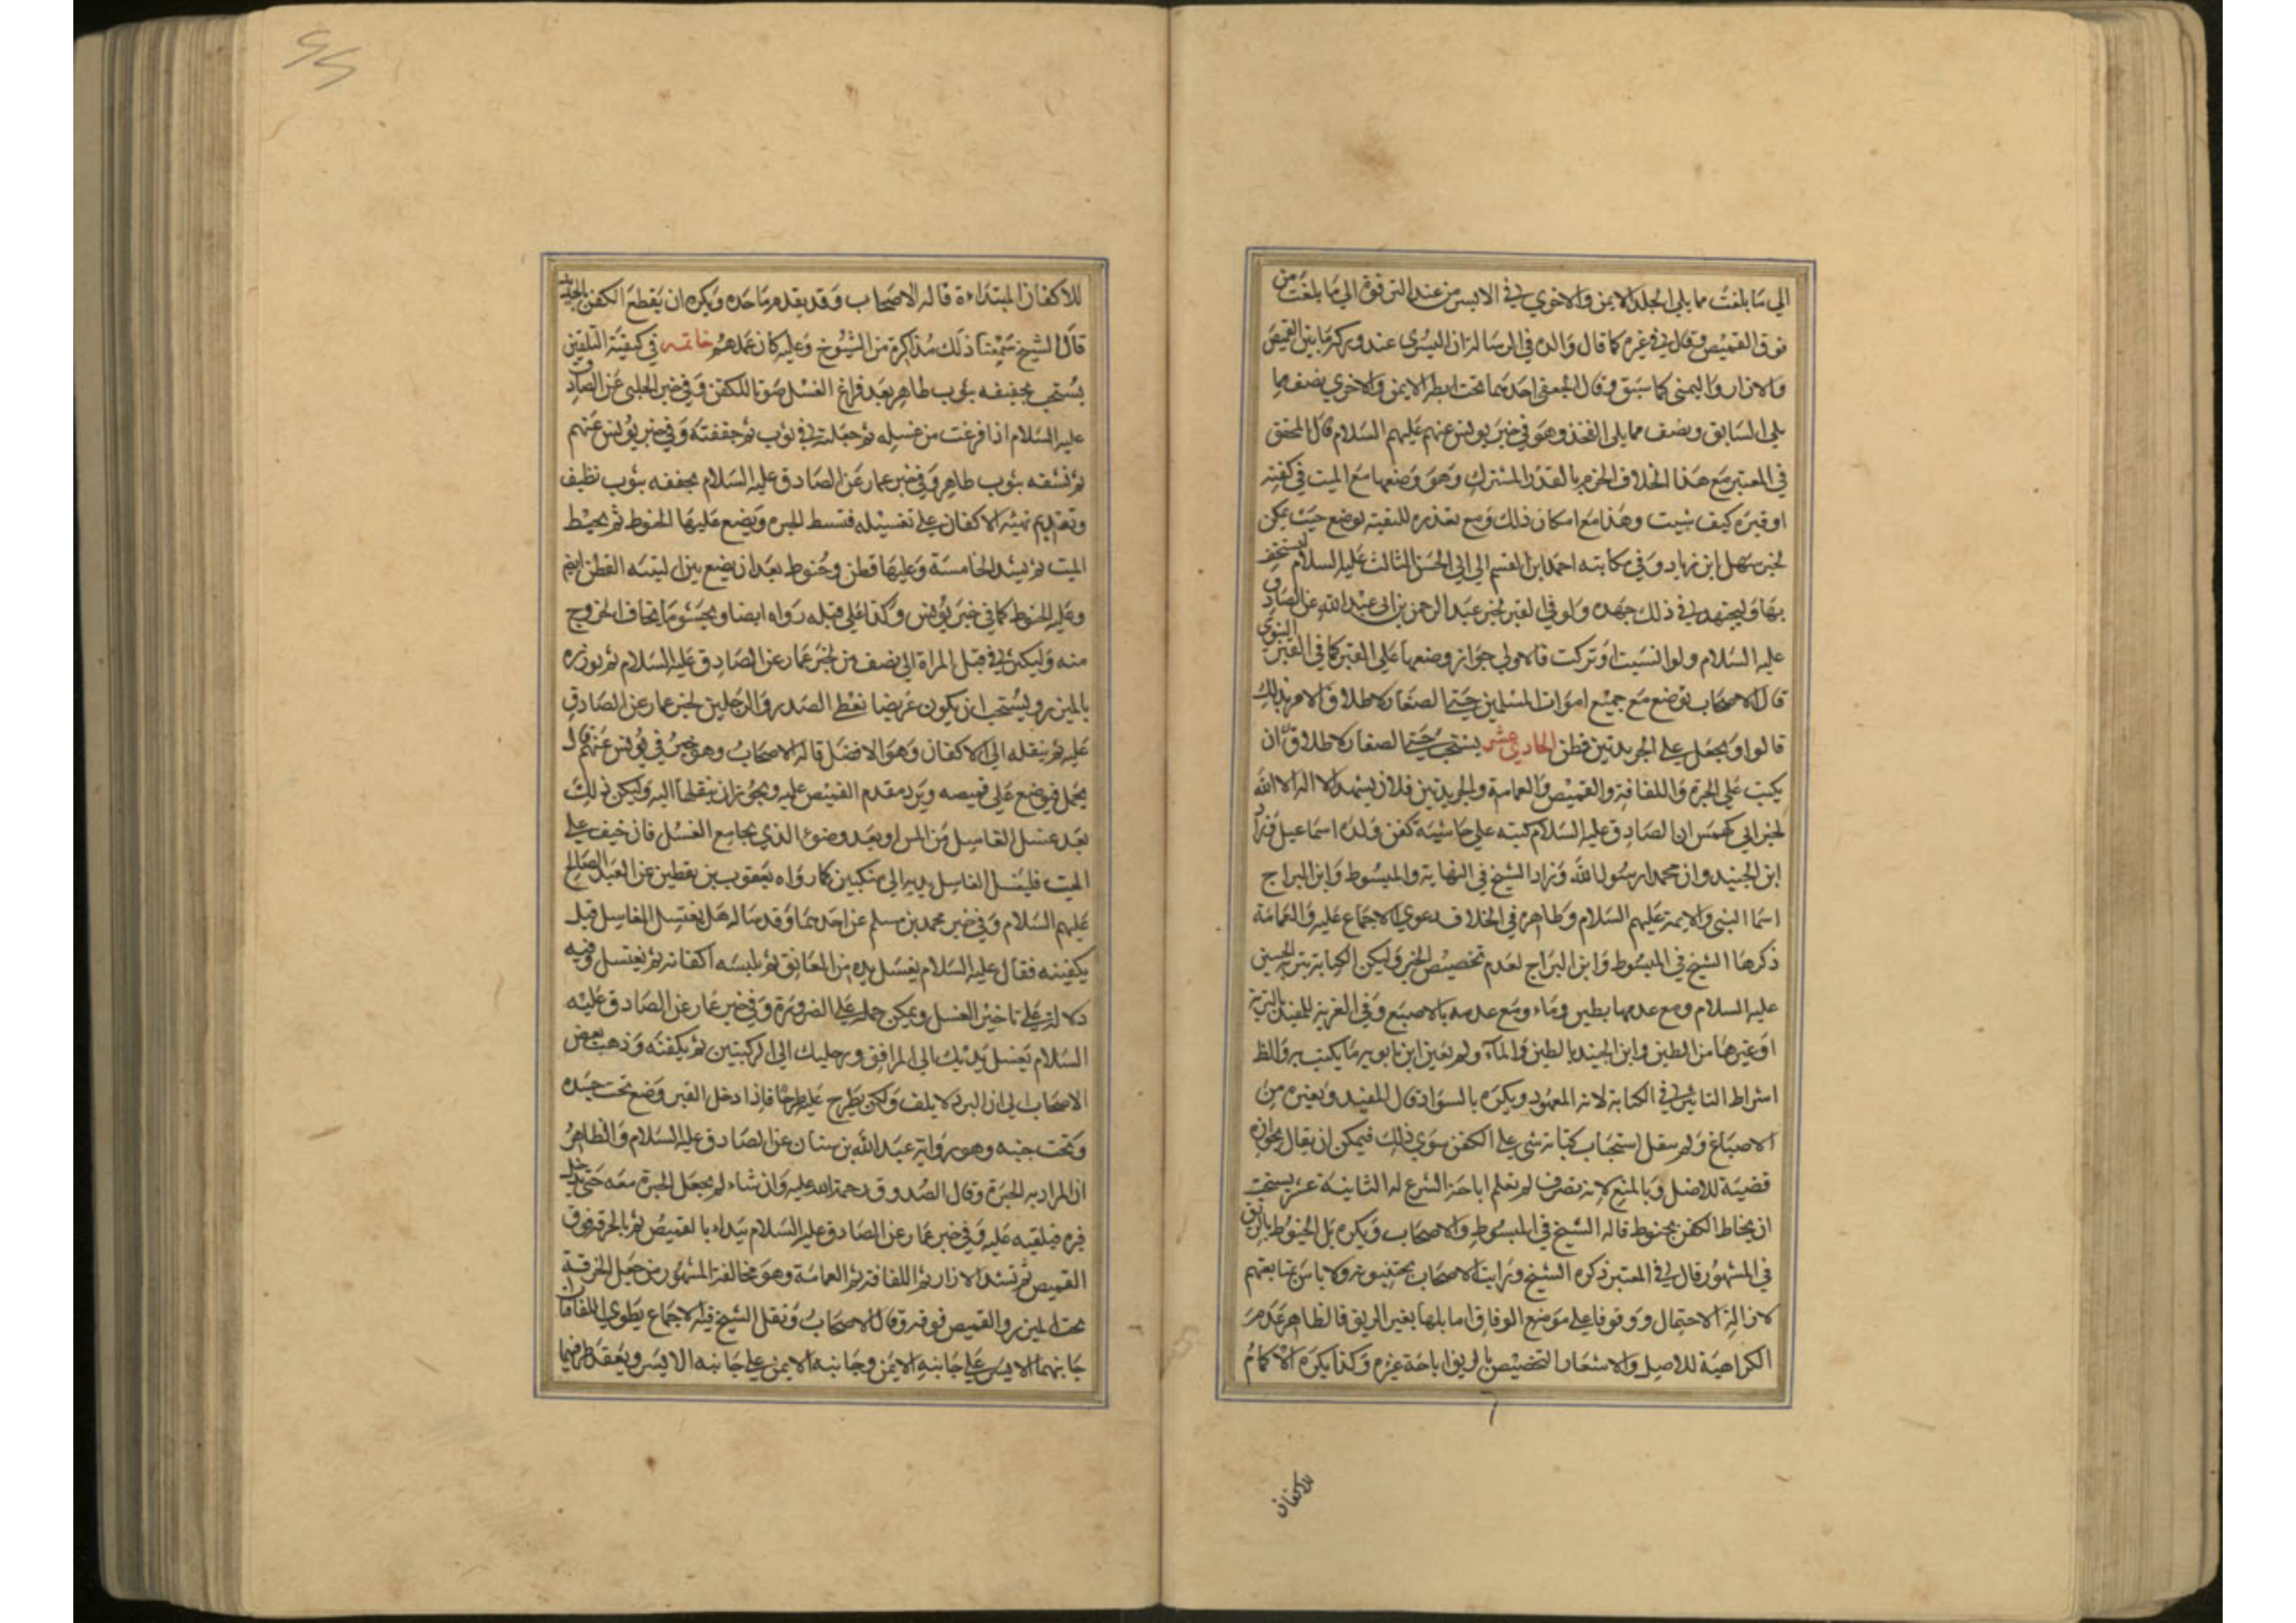 الي ما بلغت مما يلي الجلد الايمن والاخري في الايسر من عند الترقوة الي ما بلغت من
فوق القميص وقال في غيره كما قال والده في الرسالة ان اليسري عند وركه ما بين القميص
والازار واليمني كما سبق وقال الجعفي احديهما تحت ابطه الايمن والاخري نصف مما
يلي الساق ونصف مما يلي الفخذ وهو في خبر يونس عنهم عليهم السلام قال المحقق
في المعتبر مع هذا الخلاف الجزم بالقدر المشترك وهو وضعها مع الميت في كفنه
او قبره كيف شيت وهذا مع امكان ذلك ومع تعذره للتقية توضع حيث يمكن
لخبر سهل ابن زياد وفي مكاتبة احمد ابن القسم الي ابي الحسن الثالث عليه السلام يستخف
بها وليجتهد في ذلك جهده ولو في القبر لخبر عبد الرحمن بن ابي عبد الله عن الصادق
عليه السلام ولو انسيت او تركت فالاولي جواز وضعها علي القبر كما في القبر النبوي
قال الاصحاب توضع مع جميع اموات المسلمين حتي الصغار لاطلاق الامر بذلك
قالوا ويجعل علي الجريدتين قطن الحادي عشر يستحب حتي الصغار لاطلاق ان
يكتب علي الحبرة واللفافة والقميص والعمامة والجريدتين فلان يشهد الا اله الا الله
لخبر ابي كهمس ان الصادق عليه السلام كتبه علي حاشية كفن ولده اسماعيل فزاد
ابن الجنيد وان محمدا رسول الله وزاد الشيخ في النهاية والمبسوط وابن البراج
اسما النبي والايمة عليهم السلام وظاهره في الخلاف دعوي الاجماع عليه والعمامة
ذكرها الشيخ في المبسوط وابن البراج لعدم تخصيص الخبر وليكن الكتابة بتربة الحسين
عليه السلام ومع عدمها بطين وماء ومع عدمه بالاصبع وفي الغرية للمفيد بالتربة
او غيرها من الطين وابن الجنيد بالطين والماء ولم يعين ابن بابويه ما يكتب به والظ
اشراط التاثير في الكتابة لانه المعهود ويكره بالسواد قال المفيد وبغيره من
الاصباغ ولم ينقل استحباب كتابة شي علي الكفن سوي ذلك فيمكن ان يقال بجوازه
قضية للاصل وبالمنع لانه تصرف لم تعلم اباحة الشرع له الثانية عشر يستحب
ان يخاط الكفن بخيوط قاله الشيخ في المبسوط والاصحاب ويكره بل الخيوط بالريق
في المشهور قال في المعتبر ذكره الشيخ ورايت الاصحاب يجتنبونه ولا باس بمتابعتهم
لازالة الاحتمال ووقوفا علي موضع الوفاق اما بلها بغير الريق فالظاهر عدم
الكراهية للاصل والاشعار التخصيص بالريق اباحة غيره وكذا يكره الاكمام
للاكفان
للاكفان المبتداءة قاله الاصحاب وقد يقدم ماحده ويكره ان يقطع الكفن بالحديد
قال الشيخ سمعنا ذلك مذاكرة من الشيوخ وعليه كان عملهم خاتمه في كيفية التلقين
يستحب تجفيفه بثوب طاهر بعد فراغ الغسل صونا للكفن وفي خبر الحلبي عن الصادق
عليه السلام اذا فرغت من غسله ثم جعلته في ثوب ثم جففته وفي خبر يونس عنهم
ثم نشفه بثوب طاهر وفي خبر عمار عن الصادق عليه السلام يجففه بثوب نظيف
وتقديم تهيئه الاكفان علي تغسيله فتبسط الحبره ويضع عليها الحنوط ثم يحيط
الميت ثم يشد الخامسة وعليها قطن وحنوط بعد ان يضع بين اليتيه القطن ايضا
وعليه الحنوط كما في خبر يونس وكذا علي قبله رواه ايضا ويحشو ما يخاف الخروج
منه وليكن في قبل المراة الي نصف من لخبر عمار عن الصادق عليه السلام ثم يوزره
بالميزر ويستحب ان يكون عريضا يغطي الصدر والرجلين لخبر عمار عن الصادق
عليه ثم ينقله الي الاكفان وهو الافضل قاله الاصحاب وهو خبر في يونس عنهم قال
يحمل فيوضع علي قميصه ويرد مقدم القميص عليه ويجوز ان ينقلها اليه وليكن ذلك
بعد غسل الغاسل من المس او بعد وضوء الذي يجامع الغسل فان خيف علي
الميت فليغسل الغاسل يديه الي منكبين كما رواه يعقوب بن يقطين عن العبد الصالح
عليهم السلام وفي خبر محمد بن مسلم عن احدهما وقد ساله هل يغتسل الغاسل قبل
يكفينه فقال عليه السلام يغسل يده من العاتق ثم يلبسه اكفانه ثم يغتسل وفيه
دلالة علي تاخير الغسل ويمكن حمله علي الضرورة وفي خبر عمار عن الصادق عليه
السلام تغسل يديك الي المرافق ورجليك الي الركبتين ثم يكفنه وذهب بعض
الاصحاب الي ان البرد لا يلف ولكن يطرح عليه طرحا فاذا ادخل القبر وضع تحت خده
وتحت جنبه وهو رواية عبد الله بن سنان عن الصادق عليه السلام والظاهر
ان المراد به الحبرة وقال الصدوق رحمة الله عليه وان شاء لم يجعل الحبرة معه حتي يدخل
قبره فيلقيه عليه وفي خبر عمار عن الصادق عليه السلام يبداء بالقميص ثم بالخرقة فوق
القميص ثم تشد الازار ثم اللفافة ثم العمامة وهو مخالفة المشهور من جعل الخرقة
تحت الميزر والقميص فوقه وقال الاصحاب ونقل الشيخ فيه الاجماع يطوي اللفافتان
جانبهما الايسر علي جانبه الايمن وجانبه الايمن علي جانبه الايسر ويعقد طرفيها